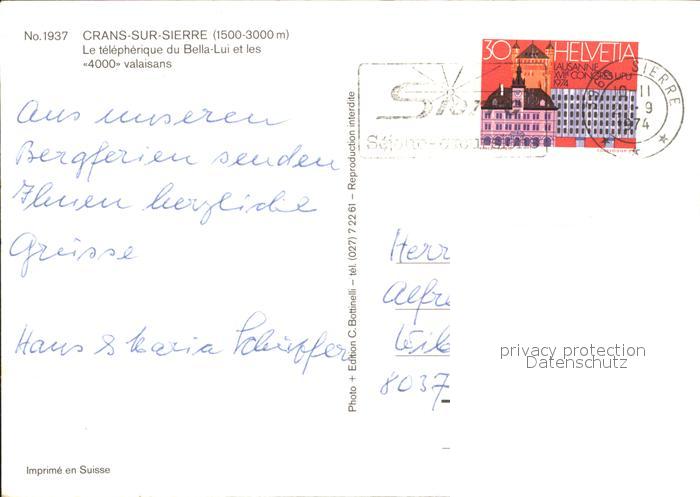 No. 1937 CRANS-SUR-SIERRE (1500-3000 m)
Le téléphérique du Bella-Lui et les
«4000» valaisans
Aus unseren
Bergferien senden
Ihnen herzliche
Grüsse
Hans & Maria
Imprimé en Suisse
Photo + Edition C. Bottinelli – tél. (027) 7 22 61 – Reproduction interdite
30 HELVETIA
LAUSANNE
XVIIe CONGRÈS UPU
1974
SIERRE
1974
Herr
Alfre
8037
privacy protection
Datenschutz